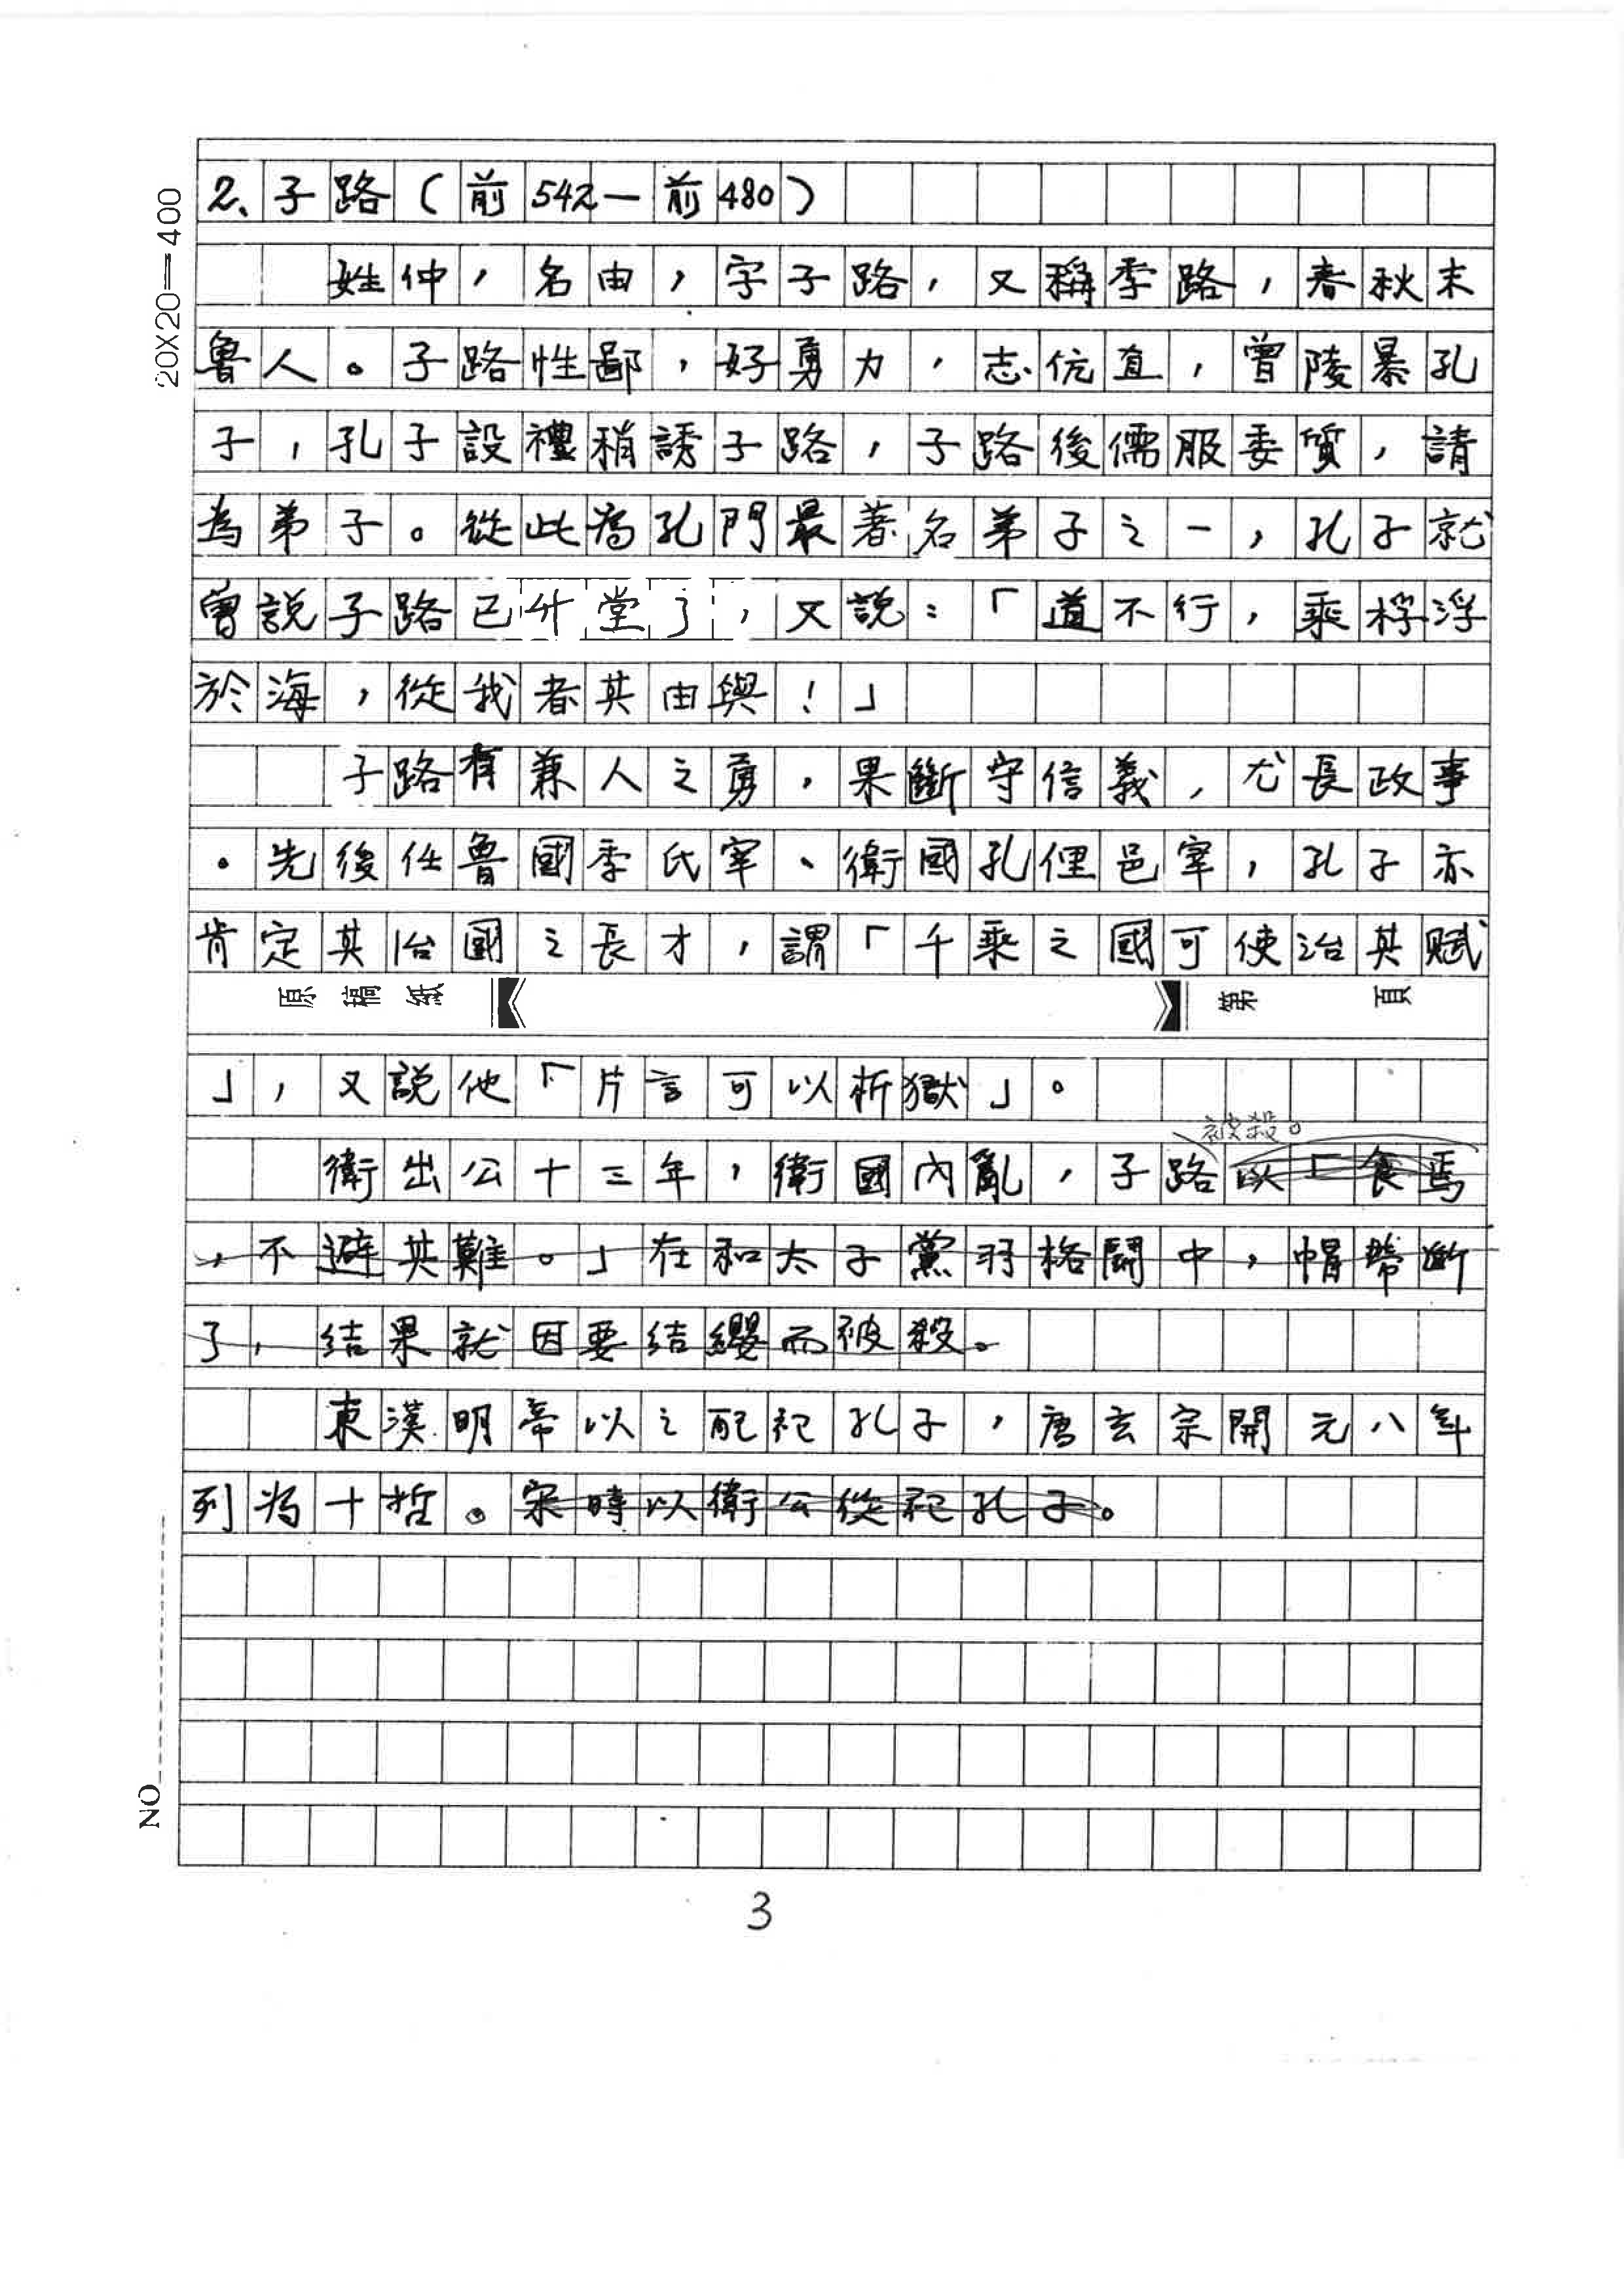 20X20=400
2、子路(前542—前480)
姓仲,名由,字子路,又稱季路,春秋末
魯人。子路性鄙,好勇力,志伉直,曾陵暴孔
子,孔子設禮稍誘子路,子路後儒服委質,請
為弟子。從此為孔門最著名弟子之一,孔子就
曾說子路已升堂了,又說:「道不行,乘桴浮
於海,從我者其由與!」
子路有兼人之勇,果斷守信義,尤長政事
。先後任魯國季氏宰、衛國孔俚邑宰,孔子亦
肯定其治國之長才,謂「千乘之國可使治其賦
原稿紙 第 頁
」,又說他「片言可以析獄」。
被殺。
衛出公十三年,衛國內亂,子路以「食焉
,不避其難。」在和太子黨羽格鬪中,帽帶斷
了,結果就因要結纓而被殺。
東漢明帝以之配祀孔子,唐玄宗開元八年
列為十哲。宋時以衛公從祀孔子。
NO
3